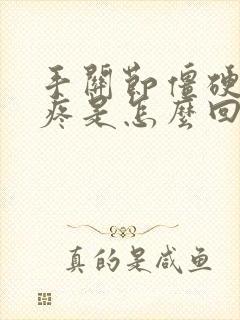 手關節僵硬
疼是怎麼回
真的是咸鱼